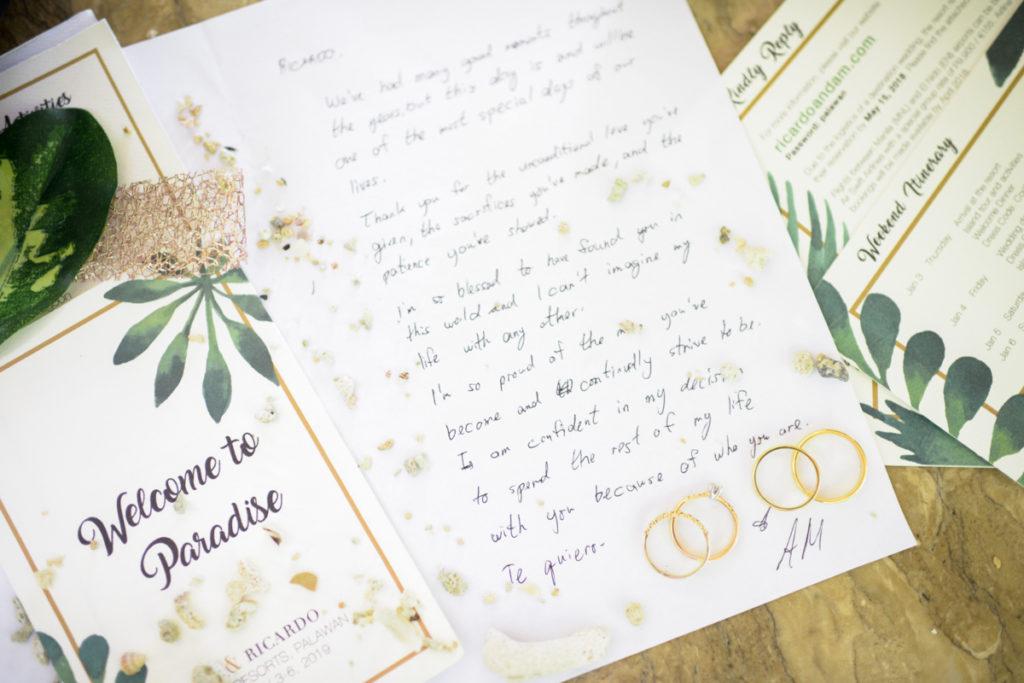 Activities
Welcome to
Paradise
& RICARDO
RESORTS, PALAWAN
3-6, 2019
RICARDO.
We've had many good moments throughout
the years, but this day is and will be
one of the most special days of our
lives.
Thank you for the unconditional love you've
given, the sacrifices you've made, and the
patience you've showed.
I'm so blessed to have found you in
this world and I can't imagine my
life with any other.
I'm so proud of the you've
become and continually strive to be.
I am confident in my
to spend the rest of my life
with you because of who you are.
Te quiero.
AM
Kindly Reply
For more information, please visit our website
ricardoandam.com
Password: palawan
Due to the logistics of a destination wedding, the need
reservation by May 15, 2018. Please find the attached
Weekend Itinerary
Jan 3 Thursday Arrive at the resort
Island tour and activities
Welcome Dinner
Jan 4 Friday
Jan 5
Jan 6